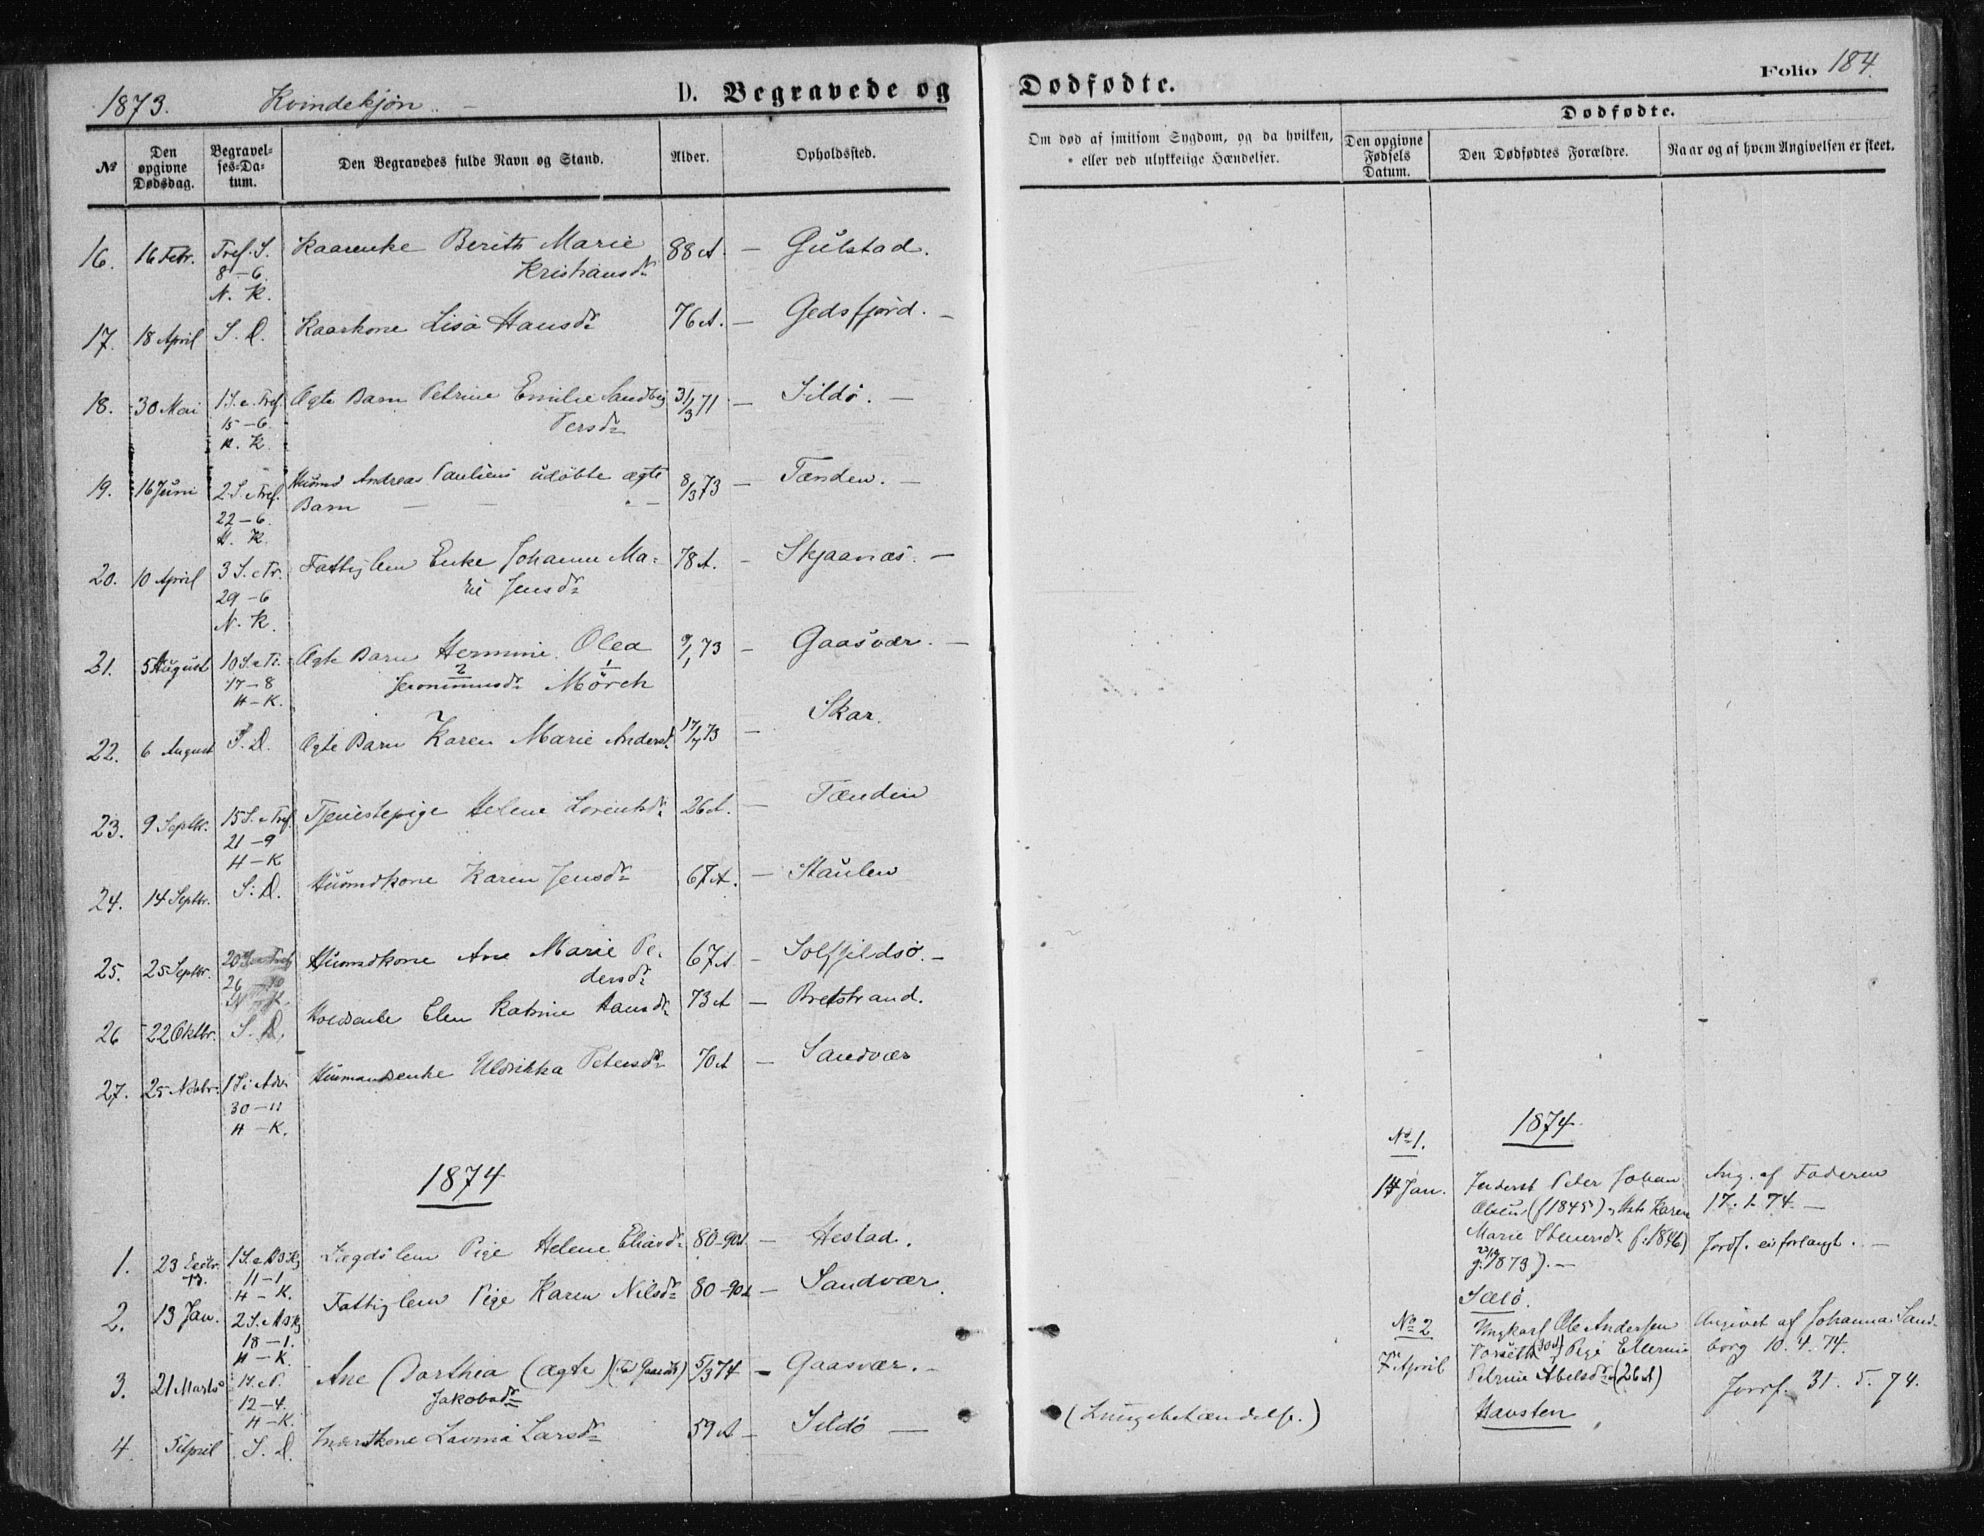 1873. Kvindekjøn. D. Begravede og Dødfødte. Folio 184.
Dødfødte.
№ Den opgivne Dødsdag. Begravelses-Datum. Den Begravedes fulde Navn og Stand. Alder. Opholdssted. Om død af smitsom Sygdom, og da hvilken, eller ved ulykkelige Hændelser. Den opgivne Fødsels Datum. Den Dødfødtes Forældre. Naar og af hvem Angivelsen er skeet.
16. 16 Febr. Tref. S. Kaarenke Berith Marie 88 A. — Gulstad.
8–6. Kristiansdr
N. K.
17. 18 April S. D. Kaarkone Lisa Hansdr 76 A. — Gedsfjord. —
18. 30 Mai 1 S. e. Tref. Ægte Barn Petrine Emilie Sandberg 31/3 71 — Sildø. —
15–6. Persdr
N. K.
19. 16 Juni 2 S. e Tref. Husmd Andreas Paulsens udøbte ægte 8/3 73 — Tænden. —
22–6. Barn — — —
H. K.
20. 10 April 3 S. e Tr. Fattiglem Enke Johanne Ma- 78 A. — Skjaanæs. —
29–6 rie Jensdr
N. K.
21. 5 August 10 S. e Tr. Ægte Barn Hermine Olea 9/1 73 — Gaasvær. —
17–8 2 1
H–K. Jeronimusdr Mörch
22. 6 August S. D. Ægte Barn Karen Marie Andersdr 17/7 73 — Skar.
23. 9 Septbr. 15 S. e Tref. Tjenestepige Helene Lorentsdr 26 A. — Tænden
21–9
H–K
24. 14 Septbr. S. D. Husmdkone Karen Jensdr 67 A. — Staulen
25. 25 Septbr. Husmdkone Ane Marie Pe- 67 A. — Solfjeldsø. —
dersdr
26 22 Oktbr. S. D. Elen Katrine Hansdr 73 A — Bretstrand.
27. 25 Novbr. 1 S. i Adv. Husmandsenke Uldrikka Petersdr 70 A — Sandvær
30–11
H–K.
1874
1. 23 Decbr. 73. Lægdslem Pige Helene Eliasdr 80–90 A. — Hestad.
11–1
H–K.
2. 13 Jan. Fattiglem Pige Karen Nilsdr 80–90 A — Sandvær.
18–1.
H–K.
3. 21 Marts Ane Dorthea (ægte) 5/3 74 — Gaasvær. —
12–4. Jakobsdr
H–K.
4. 5 April S. D. Inderstkone Lavina Larsdr 59 A — Sildø — (Lungebetændelse.)
1874.
No 1.
14 Jan. Inderst Peter Johan Ang. af Faderen
Olsen (f 1845) og Hst. Karen 17. 1. 74. —
Marie Stenersdr f. 1846) Jordf. ei forlangt. —
g. 1873). —
Sælø.
No 2 Ungkarl Ole Andersen Angivet af Johanna Sand-
7 April (30 A) Pige Ellernie borg 10. 4. 74.
Petrine Abelsdr (26 A) Jordf. 31. 5. 74.
Havsten